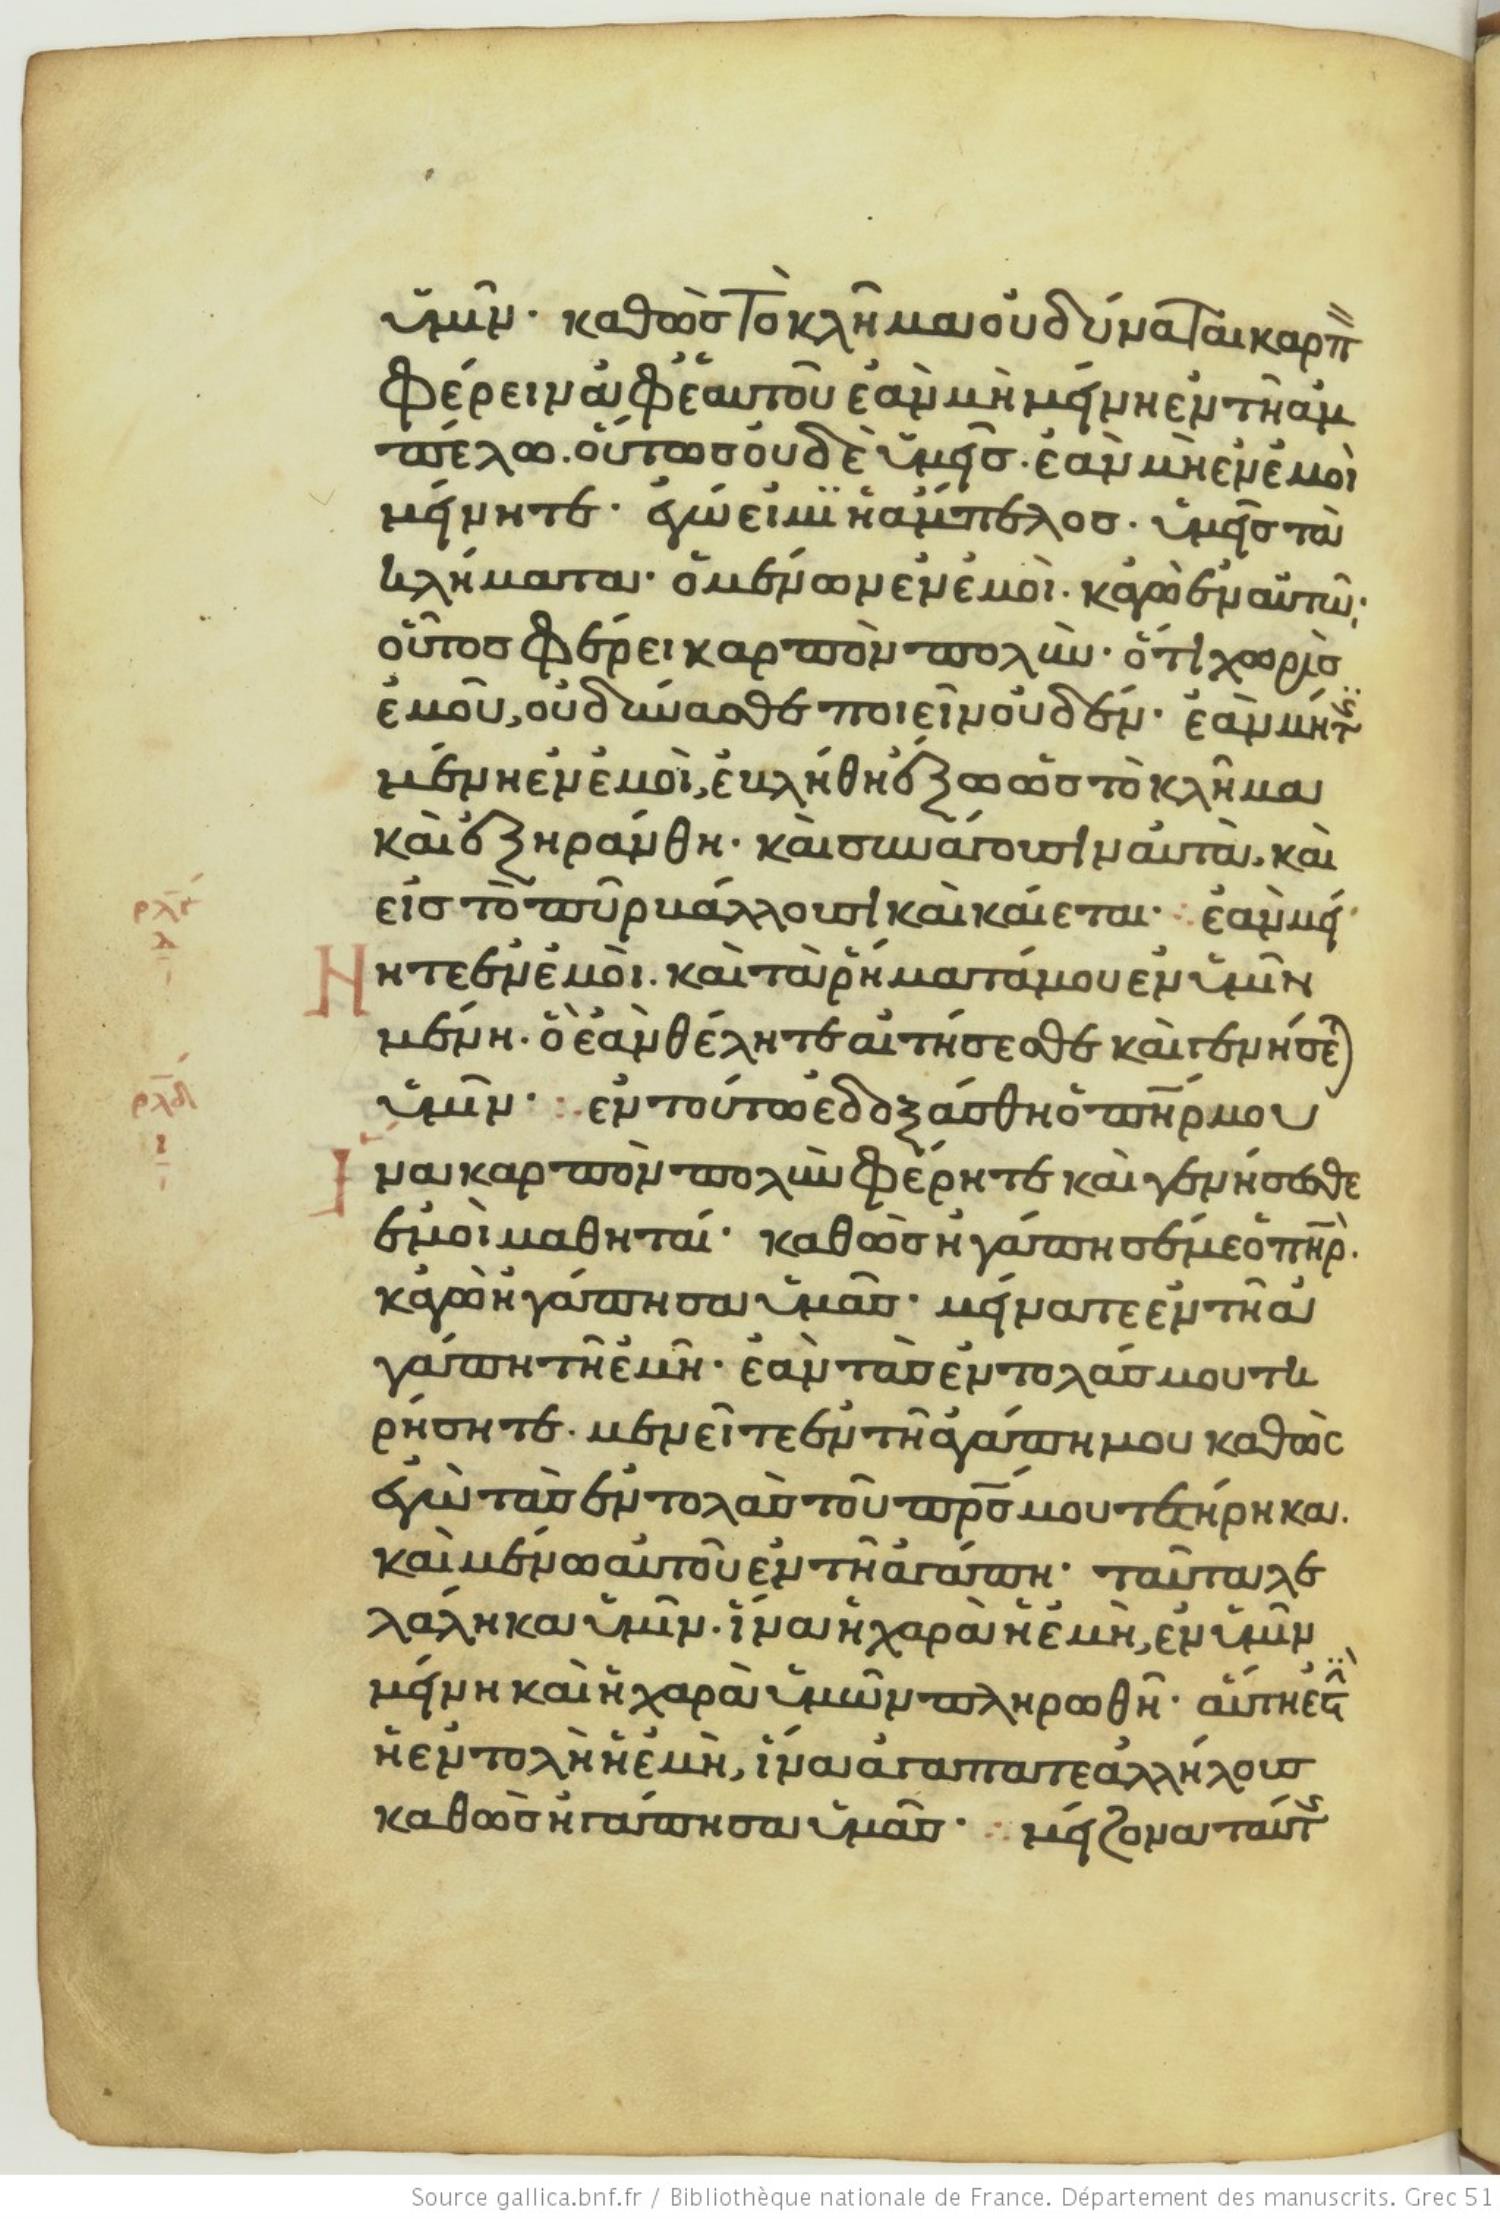 ὑμῖν· καθὼς τὸ κλῆμα οὐ δύναται καρπ
φέρειν ἀφ ἑαυτοῦ ἐὰν μὴ μείνη ἐν τῆ ἀμ
πέλω. οὕτως οὐδὲ ὑμεῖς. ἐὰν μὴ ἐν ἐμοὶ
μείνητε· ἐγώ εἰμϊ ἡ ἄμπελος. ὑμεῖς τὰ
κλήματα· ὁ μένων ἐν ἐμοὶ. κἀγὼ ἐν αὐτῶ,
οὗτος φέρει καρπὸν πολὺν· ὅτι χωρὶς
ἐμοῦ, οὐ δύνασθε ποιεῖν οὐδέν· ἐὰν μή τις
μένη ἐν ἐμοὶ, ἐκλήθη ἔξω ὡς τὸ κλῆμα
καὶ ἐξηράνθη· καὶ συνάγουσιν αὐτὰ, καὶ
εἰς τὸ πῦρ βάλλουσι καὶ καίεται· ἐὰν μεί
ρλγ
δ
Η ητε ἐν ἐμοὶ. καὶ τὰ ῥήματά μου ἐν ὑμῖν
μένη. ὃ ἐὰν θέλητε αἰτήσεσθε καὶ γενήσεται
ρλδ
ι
ὑμῖν· ἐν τούτω ἐδοξάσθη ὁ πηρ μου
Ι να καρπὸν πολὺν φέρητε καὶ γενήσεσθε
ἐμοὶ μαθηταί· καθὼς ἠγάπησέν με ὁ πηρ.
κἀγὼ ἠγάπησα ὑμᾶς· μείνατε ἐν τῆ ἀ
γάπη τῆ ἐμῆ· ἐὰν τὰς ἐντολάς μου τη
ρήσητε. μενεῖτε ἐν τῆ ἀγάπη μου καθὼς
ἐγὼ τὰς ἐντολὰς τοῦ πρς μου τετήρηκα.
καὶ μένω αὐτοῦ ἐν τῆ ἀγάπη· ταῦτα λε
λάληκα ὑμῖν. ἵνα ἡ χαρὰ ἡ ἐμὴ, ἐν ὑμῖν
μείνη καὶ ἡ χαρὰ ὑμῶν πληρωθῆ· αὕτη ἐστὶν
ἡ ἐντολὴ ἡ ἐμὴ, ἵνα ἀγαπατε ἀλλήλους
καθὼς ἠγάπησα ὑμᾶς· μείζονα ταύτης
Source gallica.bnf.fr / Bibliothèque nationale de France. Département des manuscrits. Grec 51